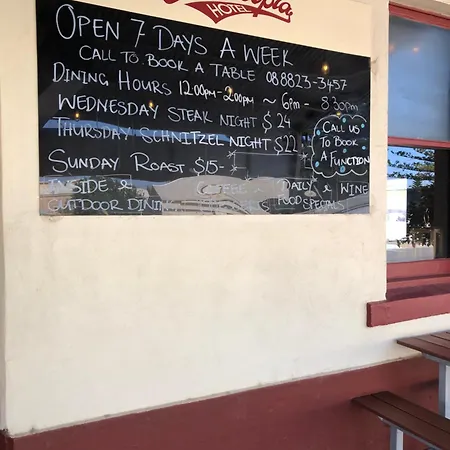 HOTEL
OPEN 7 DAYS A WEEK
CALL TO BOOK A TABLE 088823-3457
DINING HOURS 12.00pm-2.00pm ~ 6pm - 8.30pm
WEDNESDAY STEAK NIGHT $24
THURSDAY SCHNITZEL NIGHT $22
SUNDAY ROAST $15-
CALL US
TO BOOK
A FUNCTION
INSIDE & COFFEE DAILY & WINE
OUTDOOR DINING FOOD SPECIALS